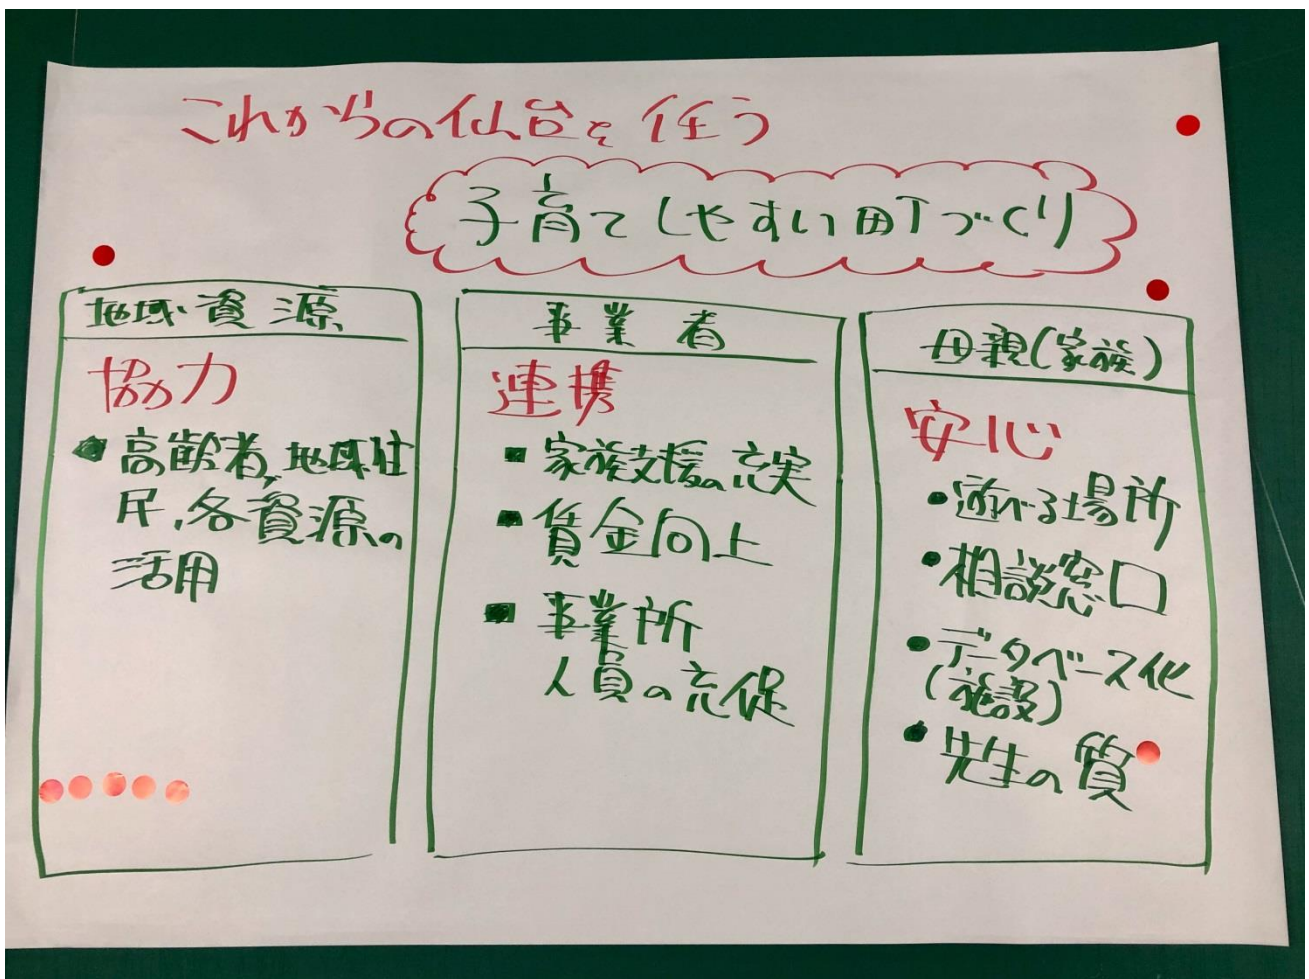 これからの仙台を任う
子育てしやすい町づくり
地域・資源
協力
高齢者、地域住
民、各資源の
活用
事業者
連携
▪ 家族支援の充実
▪ 賃金向上
▪ 事業所
人員の充促
母親(家族)
安心
• 遊べる場所
• 相談窓口
• データベース化
(施設)
• 先生の質